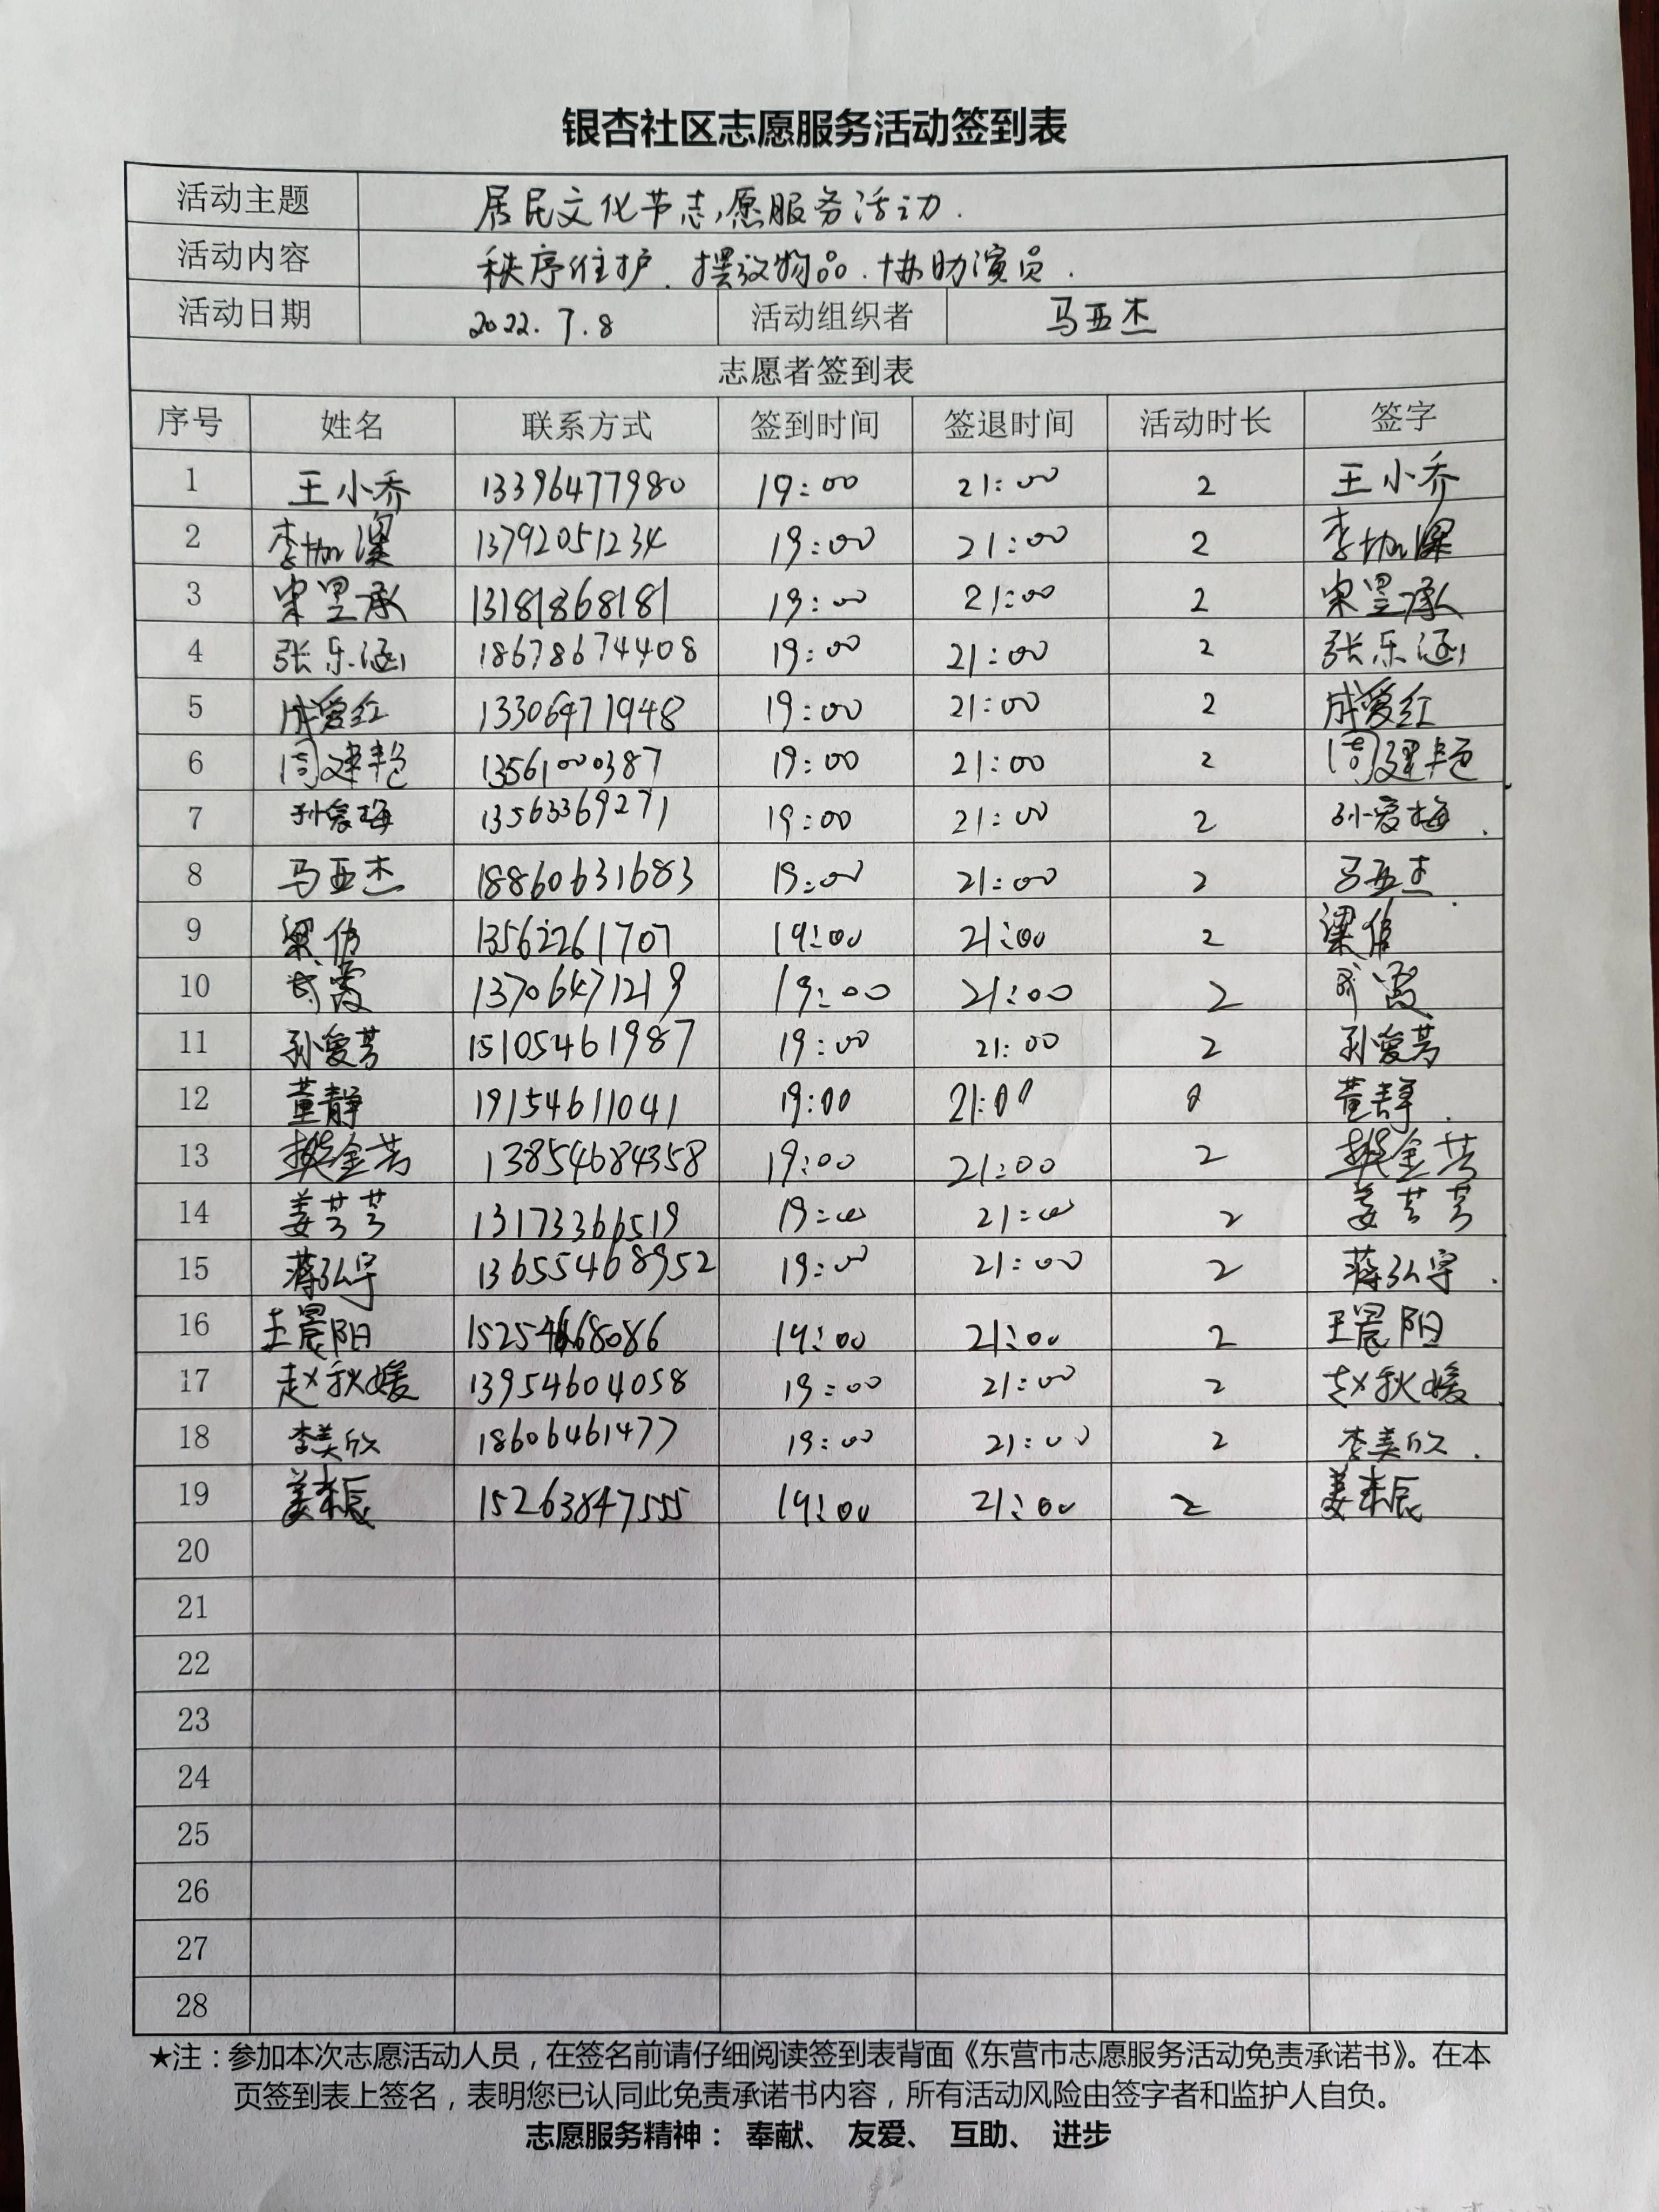 银杏社区志愿服务活动签到表
活动主题 居民文化节志愿服务活动.
活动内容 秩序维护.摆放物品.协助演员.
活动日期 2022.7.8 活动组织者 马亚杰
志愿者签到表
序号 姓名 联系方式 签到时间 签退时间 活动时长 签字
1 王小乔 13396477980 19:00 21:00 2 王小乔
2 13792051234 19:00 21:00 2
3 13181868181 19:00 21:00 2
4 张乐涵 18678674408 19:00 21:00 2 张乐涵
5 成爱红 13306471948 19:00 21:00 2 成爱红
6 周建艳 13561000387 19:00 21:00 2 周建艳
7 孙爱梅 13563369271 19:00 21:00 2 孙爱梅.
8 马亚杰 18860631683 19:00 21:00 2 马亚杰
9 13562261707 19:00 21:00 2
10 13706471219 19:00 21:00 2
11 孙爱芳 15105461987 19:00 21:00 2 孙爱芳
12 董静 19154611041 19:00 21:00 董静.
13 樊金芳 13854684358 19:00 21:00 2 樊金芳
14 姜芳芳 13173366519 19:00 21:00 2 姜芳芳
15 蒋弘宇 13655468952 19:00 21:00 2 蒋弘宇.
16 王晨阳 19:00 21:00 2 王晨阳
17 赵秋媛 13954604058 19:00 21:00 2 赵秋媛
18 李美欣 18606461477 19:00 21:00 2 李美欣.
19 姜来辰 15263847555 19:00 21:00 2 姜来辰
20
21
22
23
24
25
26
27
28
★注：参加本次志愿活动人员，在签名前请仔细阅读签到表背面《东营市志愿服务活动免责承诺书》。在本
页签到表上签名，表明您已认同此免责承诺书内容，所有活动风险由签字者和监护人自负。
志愿服务精神： 奉献、 友爱、 互助、 进步